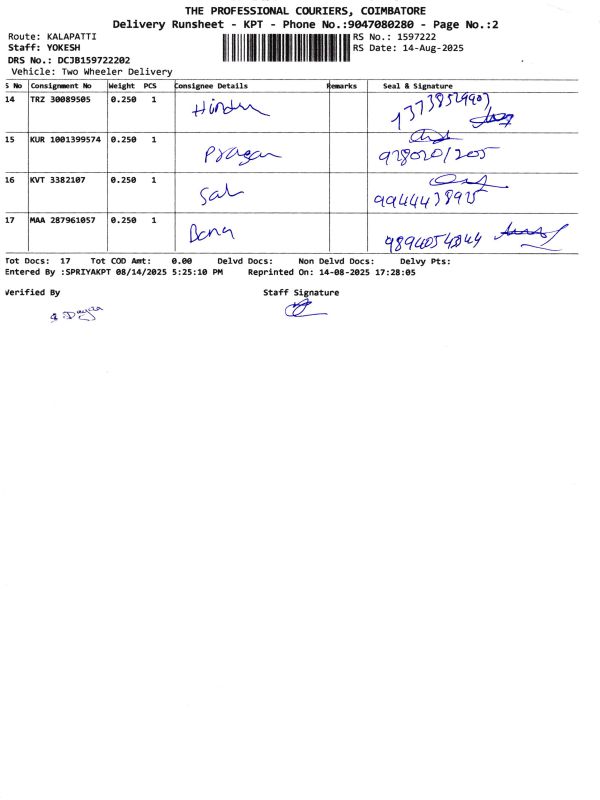 THE PROFESSIONAL COURIERS, COIMBATORE
Delivery Runsheet - KPT - Phone No.:9047080280 - Page No.:2
Route: KALAPATTI RS No.: 1597222
Staff: YOKESH RS Date: 14-Aug-2025
DRS No.: DCJB159722202
Vehicle: Two Wheeler Delivery
S No Consignment No Weight PCS Consignee Details Remarks Seal & Signature
14 TRZ 30089505 0.250 1
15 KUR 1001399574 0.250 1
16 KVT 3382107 0.250 1 Sal
17 MAA 287961057 0.250 1
Tot Docs: 17 Tot COD Amt: 0.00 Delvd Docs: Non Delvd Docs: Delvy Pts:
Entered By :SPRIYAKPT 08/14/2025 5:25:10 PM Reprinted On: 14-08-2025 17:28:05
Verified By Staff Signature